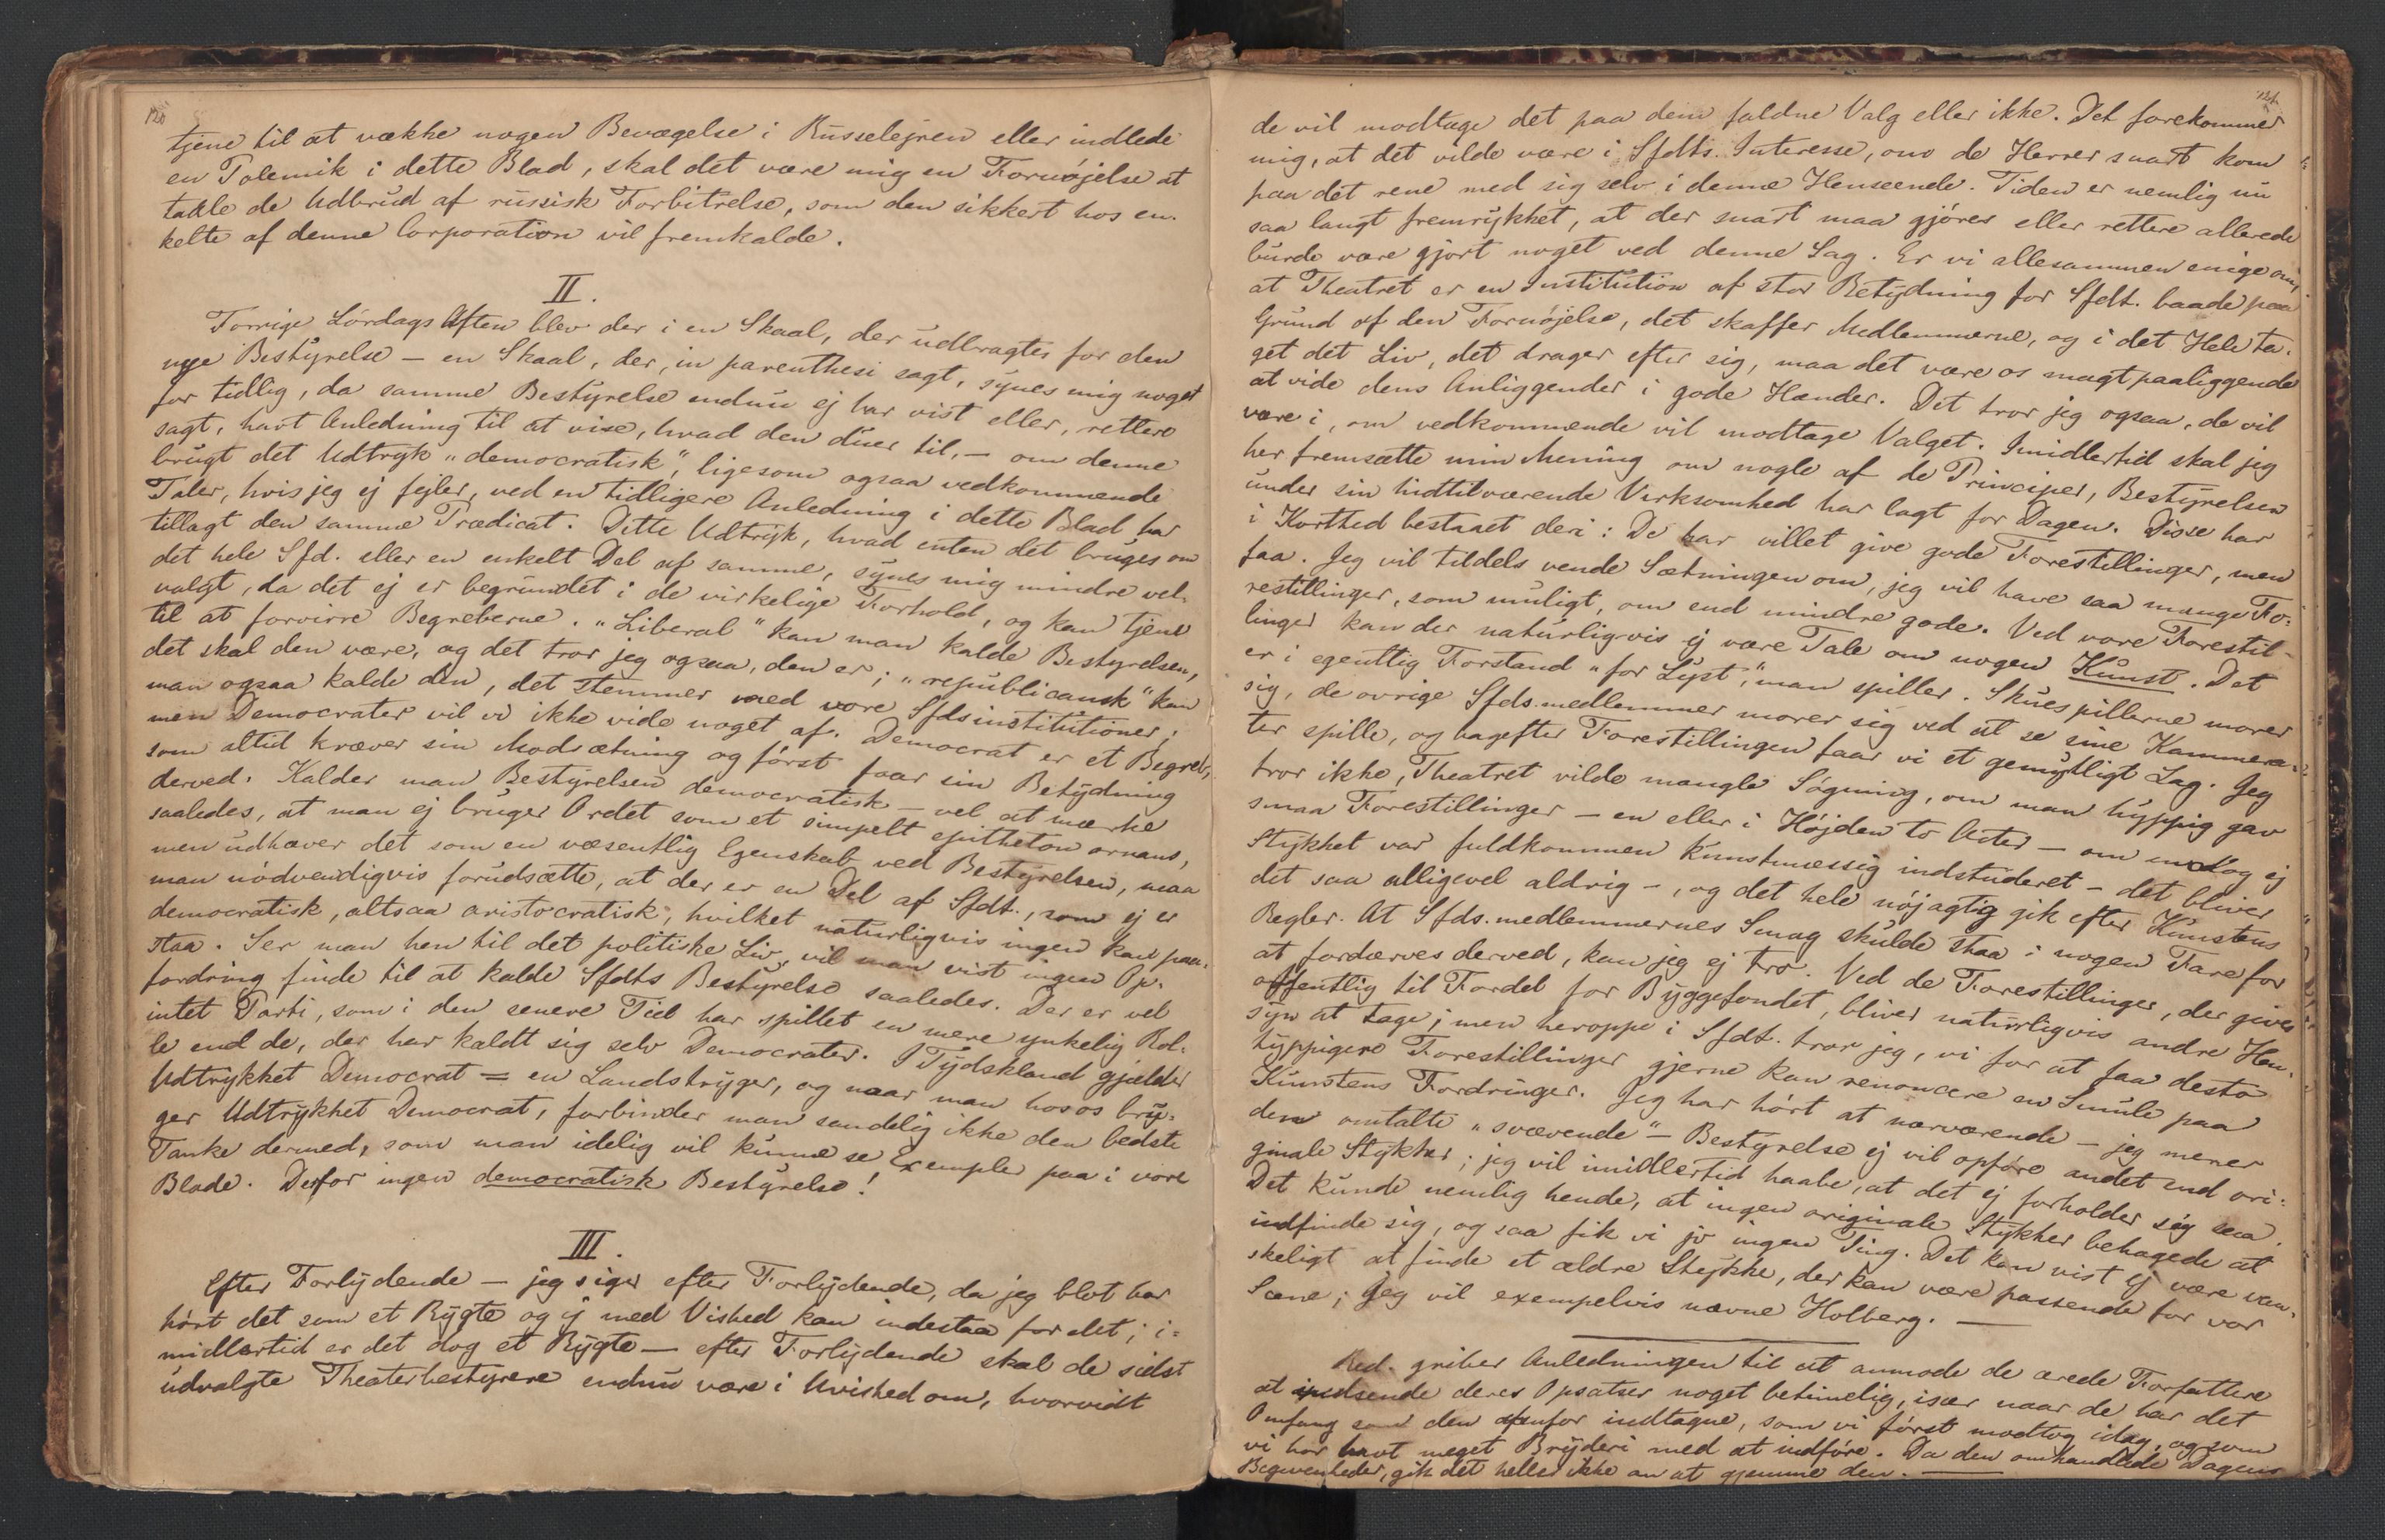 120
tjene til at vække nogen Bevægelse i Russelejren eller indlede
en Polemik i dette Blad, skal det være mig en Fornøjelse at
takle de Udbrud af russisk Forbitrelse, som den sikkert hos en-
kelte af denne Corporation vil fremkalde.
II.
Forrige Lørdags Aften blev der i en Skaal, der udbragtes for den
nye Bestyrelse – en Skaal, der, in parenthesi sagt, synes mig noget
for tidlig, da samme Bestyrelse endnu ej har vist eller, rettere
sagt, havt Anledning til at vise, hvad den duer til, – om denne
brugt det Udtryk "democratisk", ligesom ogsaa vedkommende
Taler, hvis jeg ej fejler, ved en tidligere Anledning i dette Blad har
tillagt den samme Prædicat. Dette Udtryk, hvad enten det bruges om
det hele Sfd. eller en enkelt Del af samme, synes mig mindre vel-
valgt, da det ej er begrundet i de virkelige Forhold, og kan tjene
til at forvirre Begreberne. "Liberal" kan man kalde Bestyrelsen,
det skal den være, og det tror jeg ogsaa, den er; "republicansk" kan
man ogsaa kalde den, det stemmer med vore Sfdsinstitutioner;
men Democrater vil vi ikke vide noget af. Democrat er et Begreb,
som altid kræver sin Modsætning og først faar sin Betydning
derved. Kalder man Bestyrelsen democratisk – vel at mærke
saaledes, at man ej bruger Ordet som et simpelt epitheton ornans,
men udhæver det som en væsentlig Egenskab ved Bestyrelsen, maa
man nødvendigvis forudsætte, at der er en Del af Sfdt., som ej er
democratisk, altsaa aristocratisk, hvilket naturligvis ingen kan paa-
staa. Ser man hen til det politiske Liv, vil man vist ingen Op-
fordring finde til at kalde Sfdts Bestyrelse saaledes. Der er vel
intet Parti, som i den senere Tid har spillet en mere ynkelig Rol-
le end de, der har kaldt sig selv Democrater. I Tydskland gjælder
Udtrykket Democrat = en Landstryger, og naar man hos os bru-
ger Udtrykket Democrat, forbinder man sandelig ikke den bedste
Tanke dermed, som man idelig vil kunne se Exempler paa i vore
Blade. Derfor ingen democratisk Bestyrelse!
III.
Efter Forlydende – jeg siger efter Forlydende, da jeg blot har
hørt det som et Rygte og ej med Vished kan indestaa for det; i-
midlertid er det dog et Rygte – efter Forlydende skal de sidst
udvalgte Theaterbestyrere endnu være i Uvished om, hvorvidt
121
de vil modtage det paa dem faldne Valg eller ikke. Det forekommer
mig, at det vilde være i Sfdts. Interesse, om de Herrer snart kom
paa det rene med sig selv i denne Henseende. Tiden er nemlig nu
saa langt fremrykket, at der snart maa gjøres eller rettere allerede
burde være gjort noget ved denne Sag. Er vi allesammen enige om,
at Theatret er en Institution af stor Betydning for Sfdt. baade paa
Grund af den Fornøjelse, det skaffer Medlemmerne, og i det Hele ta-
get det Liv, det drager efter sig, maa det være os magtpaaliggende
at vide dens Anliggender i gode Hænder. Det tror jeg ogsaa, de vil
være i, om vedkommende vil modtage Valget. Imidlertid skal jeg
her fremsætte min Mening om nogle af de Principer, Bestyrelsen
under sin hidtilværende Virksomhed har lagt for Dagen. Disse har
i Korthed bestaaet deri: De har villet give gode Forestillinger, men
faa. Jeg vil tildels vende Sætningen om, jeg vil have saa mange Fo-
restillinger, som muligt, om end mindre gode. Ved vore Forestil-
linger kan der naturligvis ej være Tale om nogen Kunst. Det
er i egentlig Forstand "for Lyst", man spiller. Skuespillerne morer
sig, de øvrige Sfds.medlemmer morer sig ved at se sine Kammera-
ter spille, og bagefter Forestillingen faar vi et gemytligt Lag. Jeg
tror ikke, Theatret vilde mangle Søgning, om man hyppig gav
smaa Forestillinger – en eller i Højden to Acter – om endog ej
Stykket var fuldkommen kunstmæssig indstuderet – det bliver
det saa alligevel aldrig –, og det hele nøjagtig gik efter Kunstens
Regler. At Sfds.medlemmernes Smag skulde staa i nogen Fare for
at fordærves derved, kan jeg ej tro. Ved de Forestillinger, der gives
offentlig til Fordel for Byggefondet, bliver naturligvis andre Hen-
syn at tage; men heroppe i Sfdt. tror jeg, vi for at faa desto
hyppigere Forestillinger gjerne kan renoncere en Smule paa
Kunstens Fordringer. Jeg har hørt at nærværende – jeg mener
den omtalte "svævende" – Bestyrelse ej vil opføre andet end ori-
ginale Stykker; jeg vil imidlertid haabe, at det ej forholder sig saa.
Det kunde nemlig hende, at ingen originale Stykker behagede at
indfinde sig, og saa fik vi jo ingen Ting. Det kan vist ej være van-
skeligt at finde et ældre Stykke, der kan være passende for vor
Scene; jeg vil exempelvis nævne Holberg. —
Red. griber Anledningen til at anmode de ærede Forfattere
at indsende deres Opsatser noget betimelig, især naar de har det
Omfang som den ovenfor indtagne, som vi først modtog idag, og som
vi har havt meget Bryderi med at indføre. Da den omhandlede Dagens
Begivenheder, gik det heller ikke an at gjemme den. —